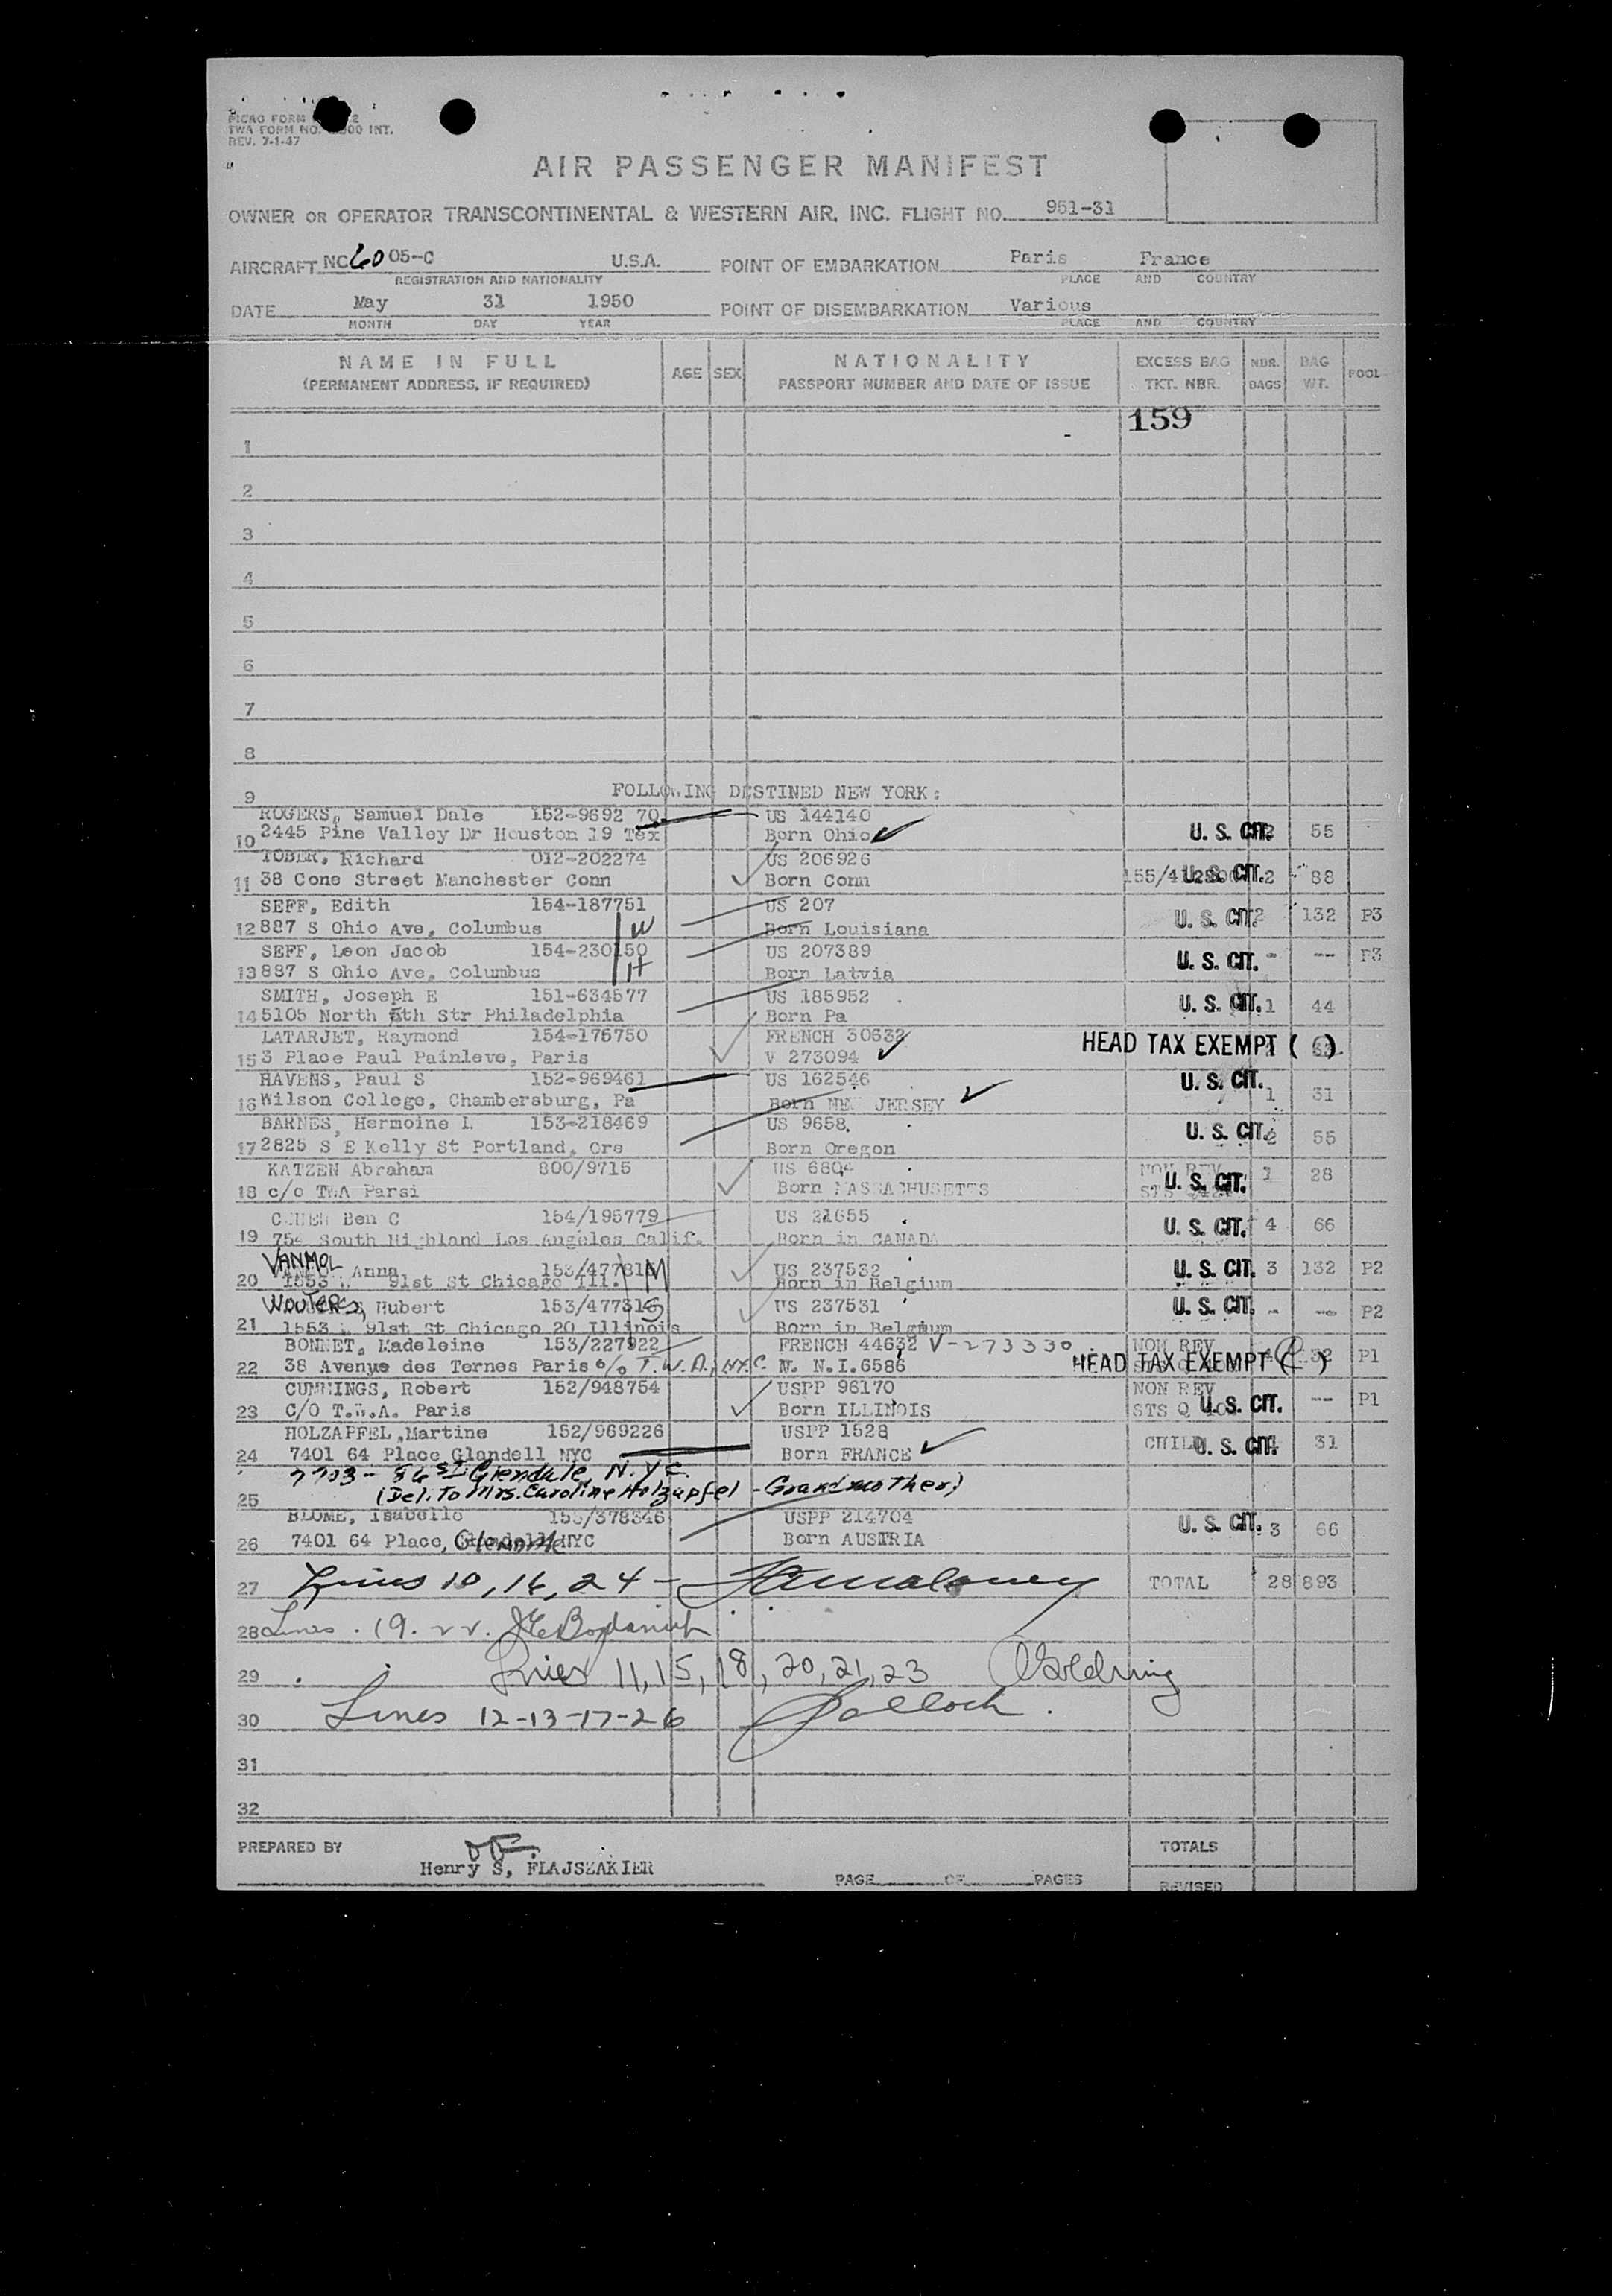 PICAO FORM
TWA FORM NO. 00 INT.
REV. 7-1-47
AIR PASSENGER MANIFEST
OWNER OR OPERATOR TRANSCONTINENTAL & WESTERN AIR, INC. FLIGHT NO. 951-31
AIRCRAFT NC 6005-C U.S.A. POINT OF EMBARKATION Paris France
REGISTRATION AND NATIONALITY PLACE AND COUNTRY
DATE May 31 1950 POINT OF DISEMBARKATION Various
MONTH DAY YEAR PLACE AND COUNTRY
NAME IN FULL AGE SEX NATIONALITY EXCESS BAG NBR. BAG POOL
(PERMANENT ADDRESS, IF REQUIRED) PASSPORT NUMBER AND DATE OF ISSUE TKT. NBR. BAGS WT.
159
1
2
3
4
5
6
7
8
9 FOLLOWING DESTINED NEW YORK:
ROGERS, Samuel Dale 152-9692 70 US 144140
10 2445 Pine Valley Dr Houston 19 Tex Born Ohio U. S. CIT. 2 55
TOBER, Richard 012-202274 US 206926
11 38 Cone Street Manchester Conn Born Conn U. S. CIT. 2 88
SEFF, Edith 154-187751 US 207
12 887 S Ohio Ave, Columbus W Born Louisiana U. S. CIT. 2 132 P3
SEFF, Leon Jacob 154-230150 US 207389
13 887 S Ohio Ave, Columbus H Born Latvia U. S. CIT. - -- P3
SMITH, Joseph E 151-634577 US 185952
14 5105 North 5th Str Philadelphia Born Pa U. S. CIT. 1 44
LATARJET, Raymond 154-175750 FRENCH 30632
15 3 Place Paul Painleve, Paris V 273094 HEAD TAX EXEMPT ( )
HAVENS, Paul S 152-969461 US 162546 U. S. CIT.
16 Wilson College, Chambersburg, Pa Born NEW JERSEY 1 31
BARNES, Hermoine L 153-218469 US 9658
17 2825 S E Kelly St Portland, Ore Born Oregon U. S. CIT. 2 55
KATZEN Abraham 800/9715 US 6804 NON REV
18 c/o TWA Parsi Born MASSACHUSETTS U. S. CIT. 1 28
Ben C 154/195779 US 21655
19 754 South Highland Los Angeles Calif. Born in CANADA U. S. CIT. 4 66
VANMOL Anna 153/477315 M US 237532
20 1553 W 91st St Chicago Ill. Born in Belgium U. S. CIT. 3 132 P2
WOUTERS, Hubert 153/477316 US 237531
21 1553 W 91st St Chicago 20 Illinois Born in Belgium U. S. CIT. - -- P2
BONNET, Madeleine 153/227922 FRENCH 44632 V-273330 NON REV
22 38 Avenue des Ternes Paris c/o T.W.A., NYC. N.I.6586 HEAD TAX EXEMPT ( ) P1
CUMMINGS, Robert 152/948754 USPP 96170 NON REV
23 C/O T.W.A. Paris Born ILLINOIS STS Q U. S. CIT. -- P1
HOLZAPFEL, Martine 152/969226 USPP 1528
24 7401 64 Place Glandell NYC Born FRANCE CHILD U. S. CIT. 31
7703 - 86 St Glendale, N.Y.C.
25 (Del. To Mrs. Caroline Holzapfel - Grandmother)
BLUME, Isabelle 153/378346 USPP 214704
26 7401 64 Place, Glendale NYC Born AUSTRIA U. S. CIT. 3 66
27 Lines 10, 16, 24 - TOTAL 28 893
28 Lines. 19. 22.
29 Lines 11, 15, 18, 20, 21, 23 Goldring
30 Lines 12-13-17-26 Pollock
31
32
PREPARED BY Henry S, FLAJSZAKIER TOTALS
PAGE OF PAGES REVISED